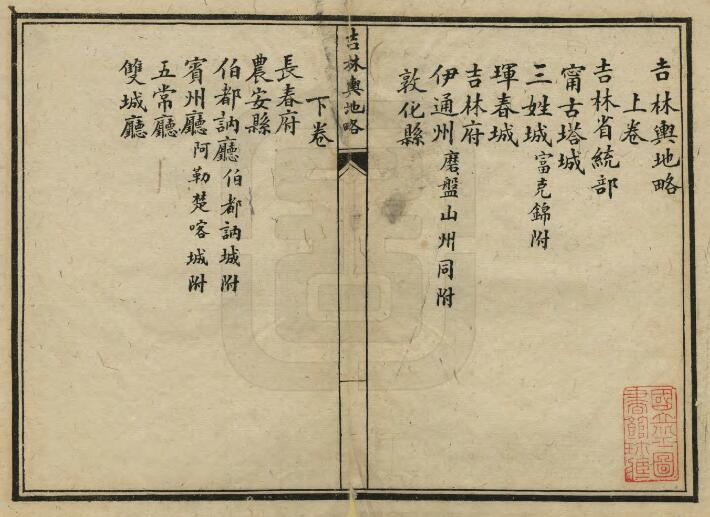 吉林輿地略
上卷
吉林省統部
甯古塔城
三姓城富克錦附
琿春城
吉林府
伊通州磨盤山州同附
敦化縣
吉林輿地略
下卷
長春府
農安縣
伯都訥廳伯都訥城附
賓州廳阿勒楚喀城附
五常廳
雙城廳